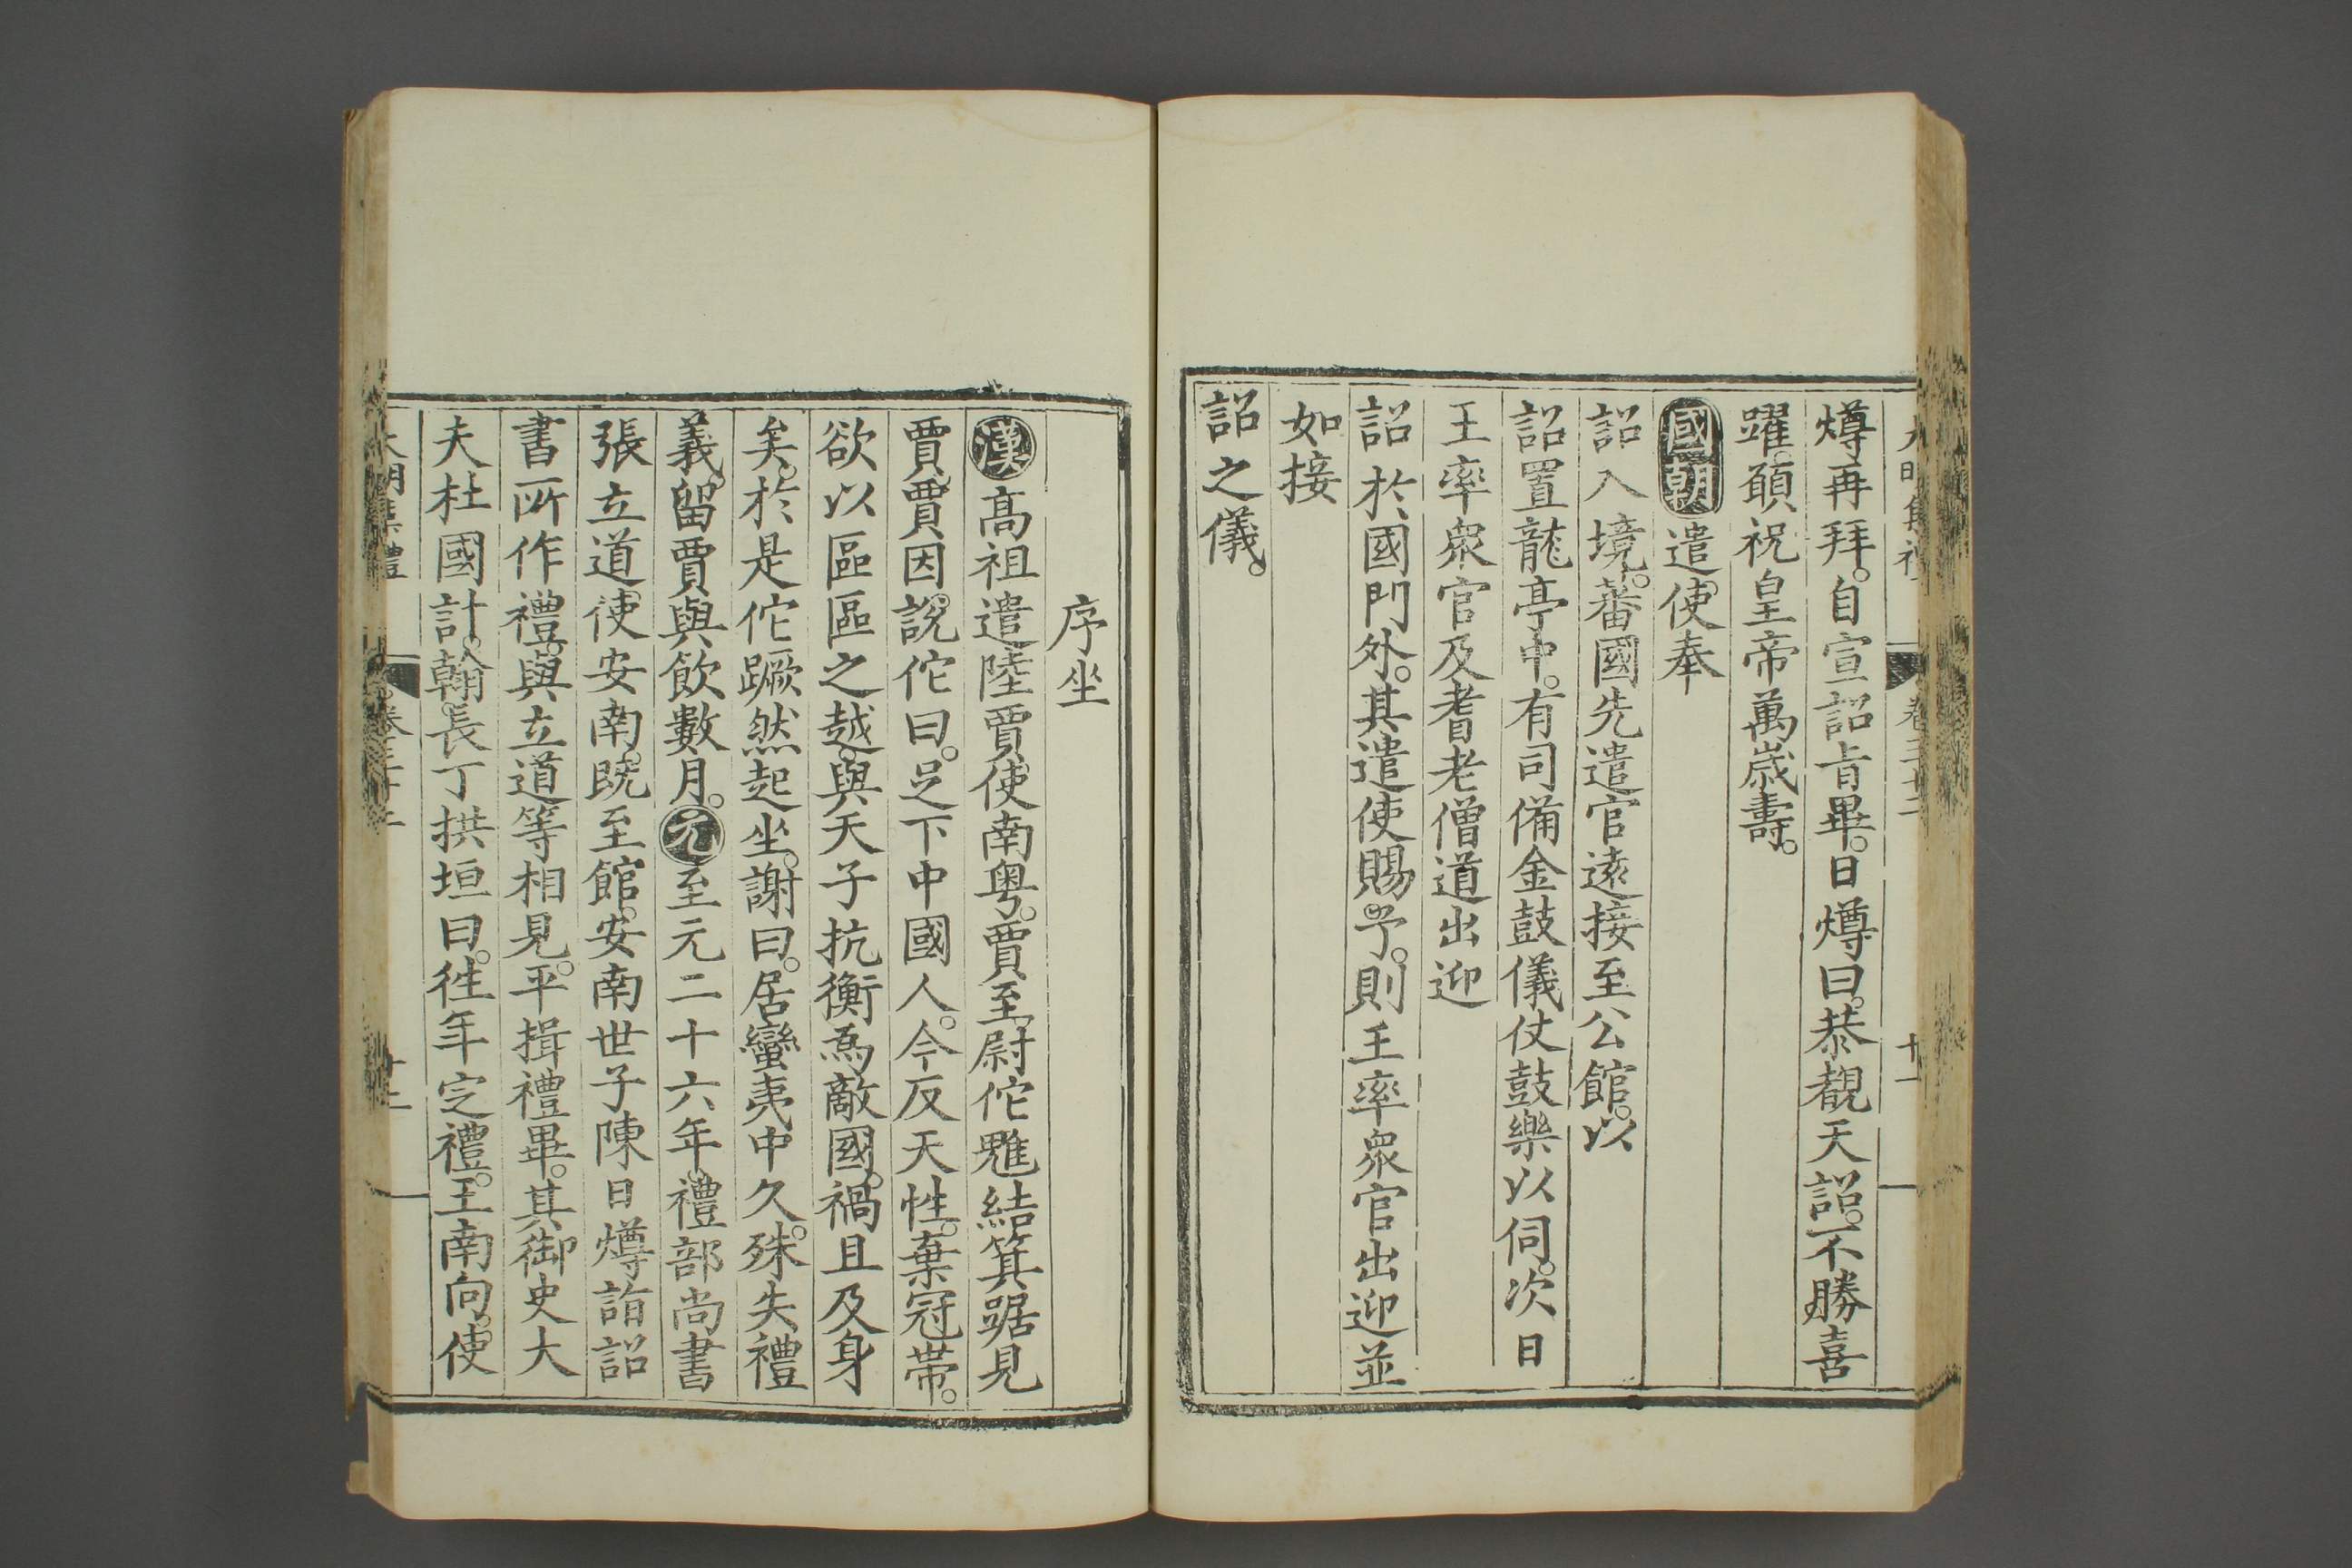 大明集禮 卷三十二 十一
燇再拜。自宣詔旨畢。日燇曰。恭覩天詔。不勝喜
躍。願祝皇帝萬歲壽。
國朝遣使奉
詔入境。蕃國先遣官遠接至公館。以
詔置龍亭中。有司備金鼓儀仗鼓樂以伺。次日
王率衆官及耆老僧道出迎
詔於國門外。其遣使賜予。則王率衆官出迎並
如接
詔之儀。
序坐
漢高祖遣陸賈使南粤。賈至尉佗魋結箕踞見
賈。賈因說佗曰。足下中國人。今反天性。棄冠帶。
欲以區區之越。與天子抗衡爲敵國。禍且及身
矣。於是佗蹶然起坐。謝曰。居蠻夷中久。殊失禮
義。留賈與飲數月。元至元二十六年禮部尚書
張立道使安南。旣至館。安南世子陳日燇詣詔
書所作禮。與立道等相見。平揖禮畢。其御史大
夫杜國計。翰長丁拱垣曰。徃年定禮。王南向。使
大明集禮 卷三十二 十二